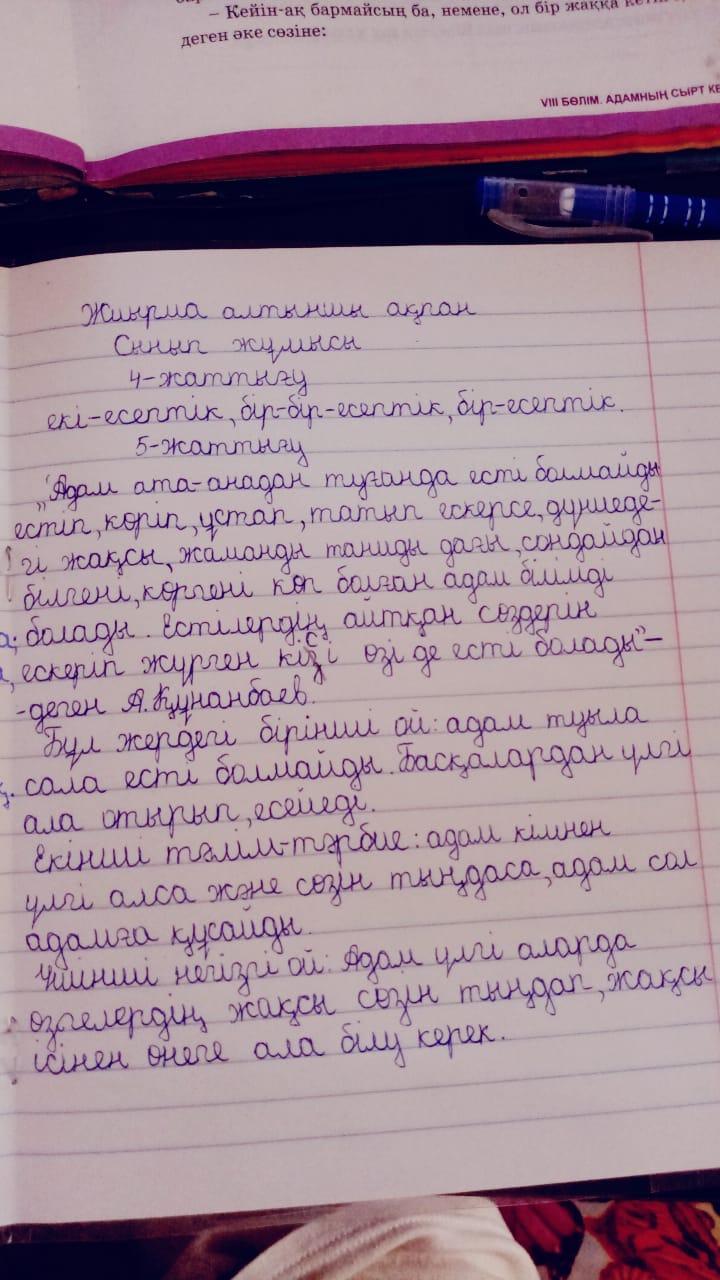 – Кейін-ақ бармайсың ба, немене, ол бір жаққа
деген әке сөзіне:
VIII БӨЛІМ. АДАМНЫҢ СЫРТ КЕ
Жиырма алтыншы ақпан
Сынып жұмысы
4-жаттығу
екі-есептік, бір-бір-есептік, бір-есептік.
5-жаттығу
„Адам ата-анадан туғанда есті болмайды
естіп, көріп, ұстап, татып ескерсе, дүниеде-
гі жақсы, жаманды таниды дағы, сондайдан
білгені, көргені көп болған адам білімді
болады. Естілердің айтқан сөздерін
ескеріп жүрген кісі өзі де есті болады" –
-деген А. Құнанбаев.
Бұл жердегі бірінші ой: адам туыла
сала есті болмайды. Басқалардан үлгі
ала отырып, есейеді.
Екінші тәлім-тәрбие: адам кімнен
үлгі алса және сөзін тыңдаса, адам сол
адамға құсайды.
Үшінші негізгі ой: Адам үлгі аларда
өзгелердің жақсы сөзін тыңдап, жақсы
ісінен өнеге ала білу керек.